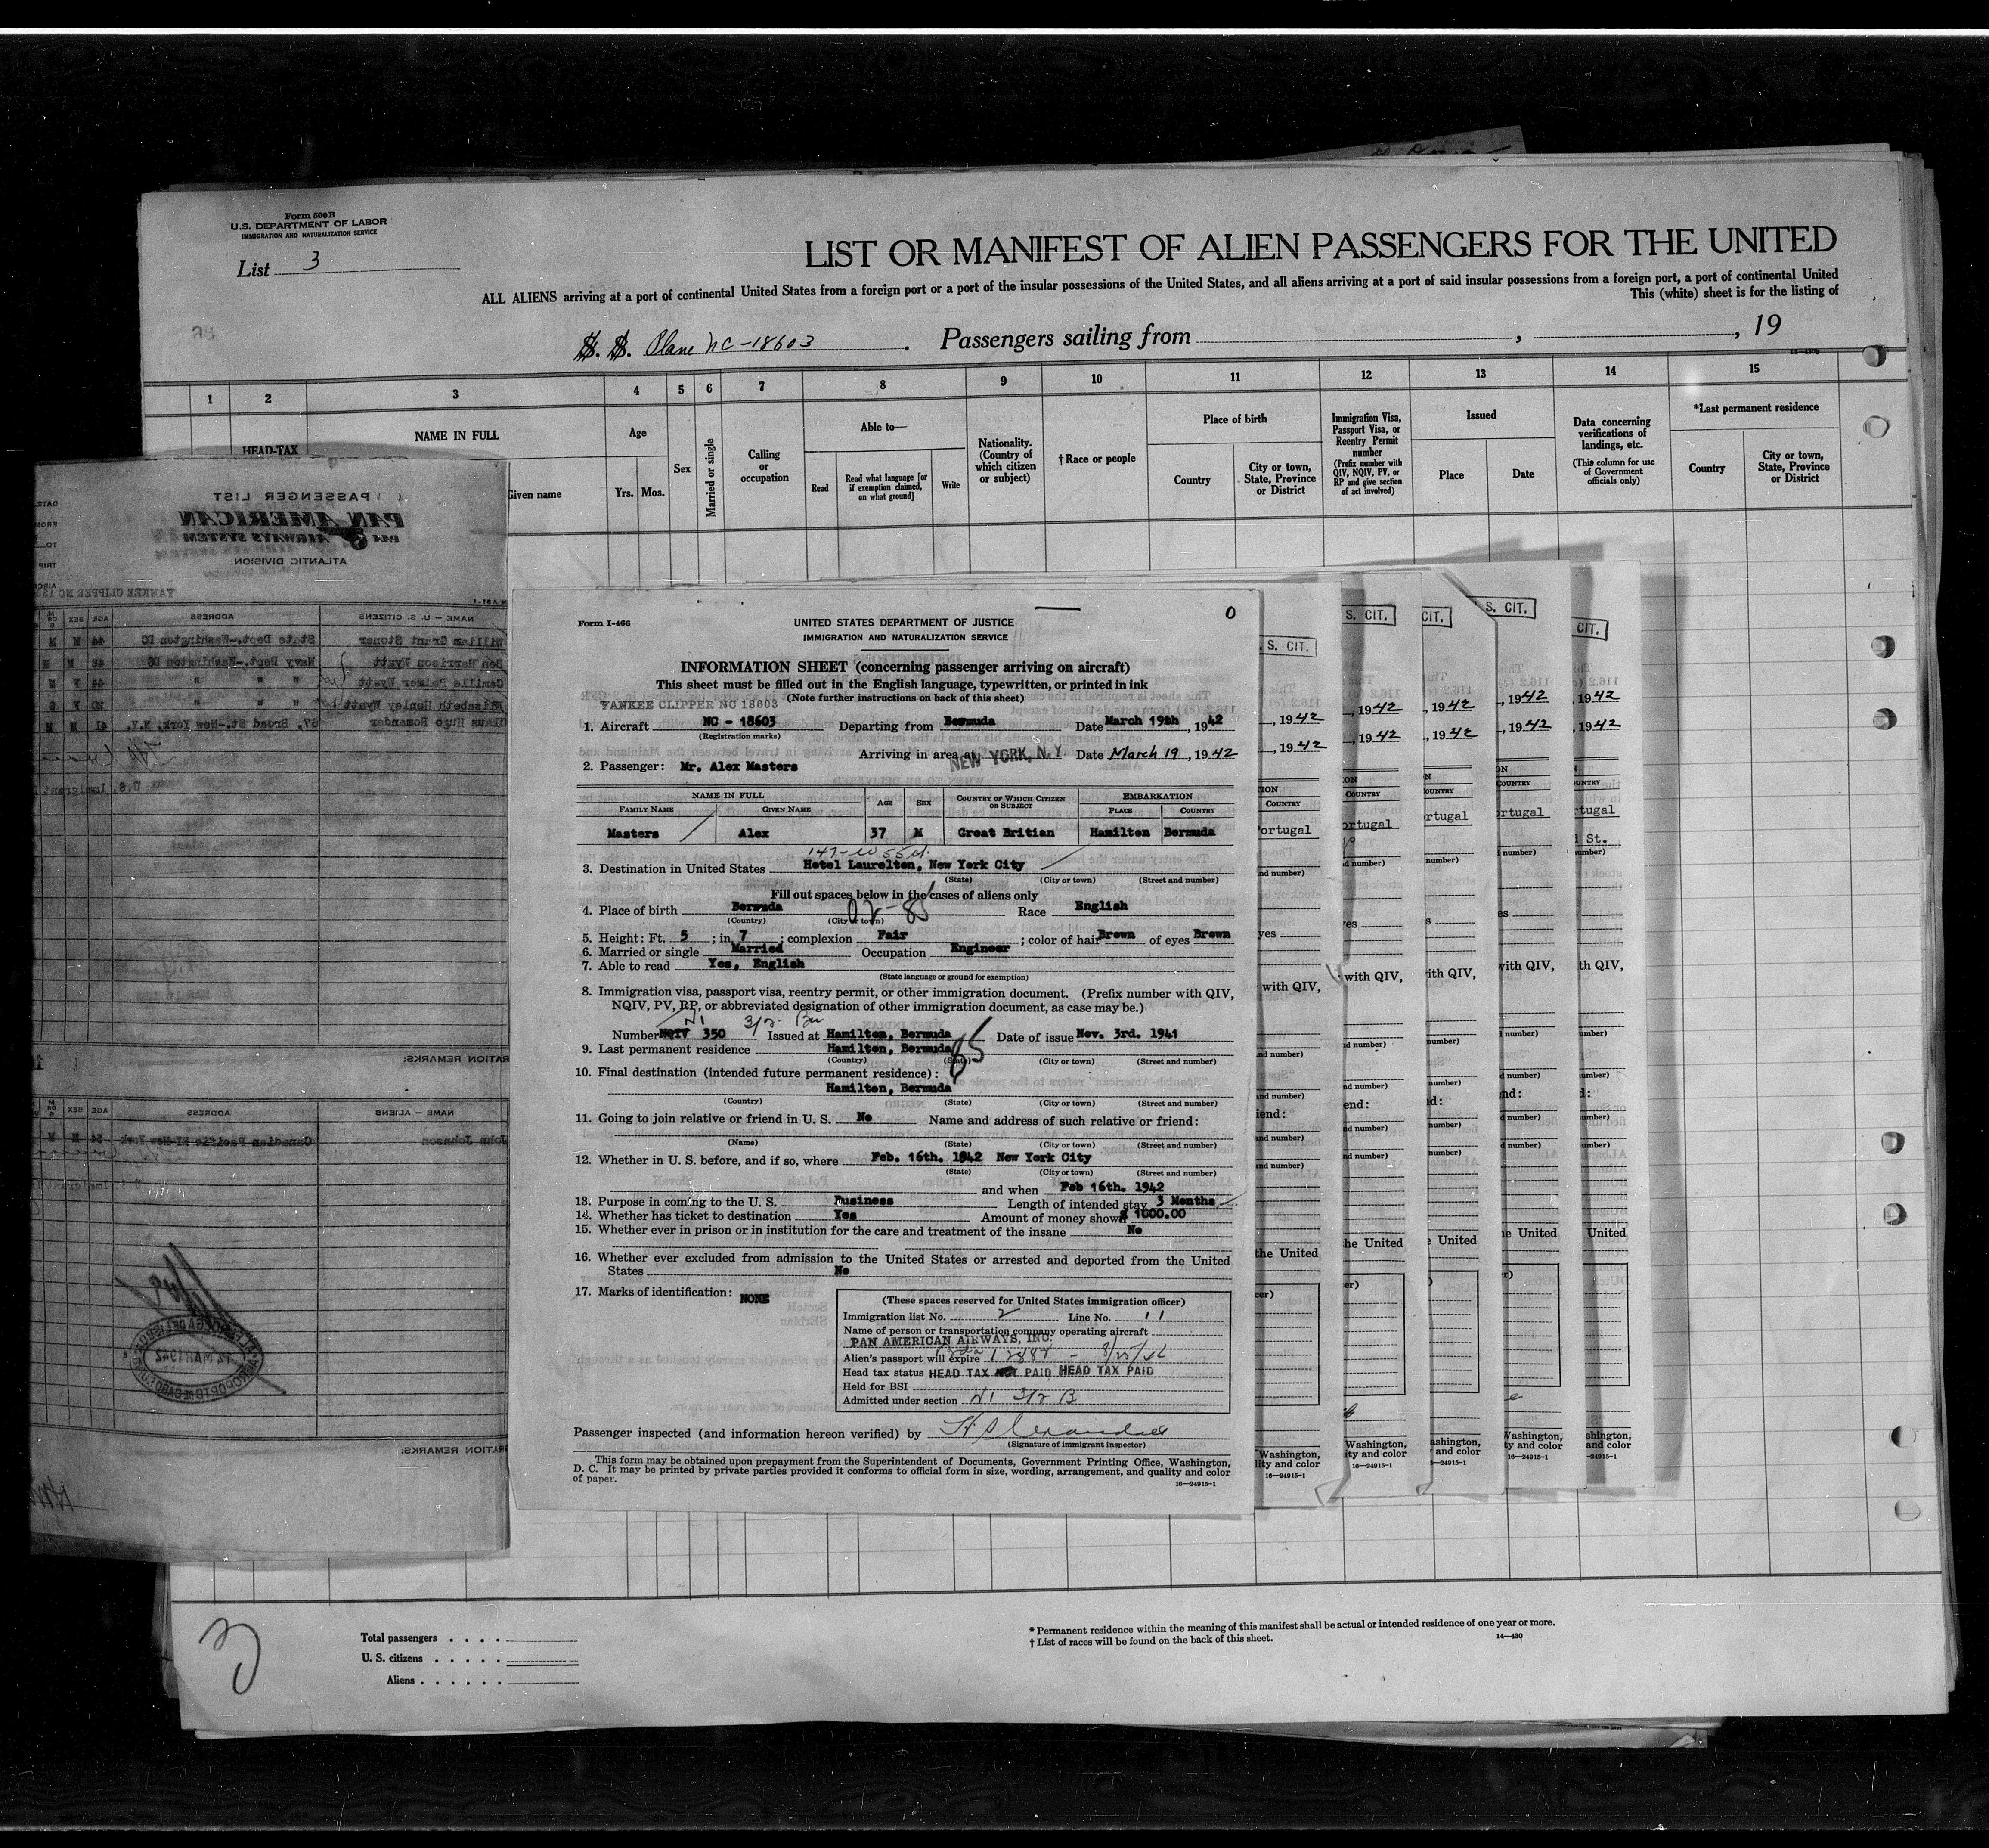 Form 500B
U.S. DEPARTMENT OF LABOR
IMMIGRATION AND NATURALIZATION SERVICE
List 3
LIST OR MANIFEST OF ALIEN PASSENGERS FOR THE UNITED
ALL ALIENS arriving at a port of continental United States from a foreign port or a port of the insular possessions of the United States, and all aliens arriving at a port of said insular possessions from a foreign port, a port of continental United
This (white) sheet is for the listing of
S. S. Plane NC-18603. Passengers sailing from , , 19
14—430
1 2 3 4 5 6 7 8 9 10 11 12 13 14 15
HEAD-TAX
NAME IN FULL
Given name
Age
Yrs. Mos.
Sex
Married or single
Calling or occupation
Able to—
Read
Read what language [or if exemption claimed, on what ground]
Write
Nationality. (Country of which citizen or subject)
†Race or people
Place of birth
Country
City or town, State, Province or District
Immigration Visa, Passport Visa, or Reentry Permit number
(Prefix number with QIV, NQIV, PV, or RP and give section of act involved)
Issued
Place
Date
Data concerning verifications of landings, etc.
(This column for use of Government officials only)
*Last permanent residence
Country
City or town, State, Province or District
( ) PASSENGER LIST
PAN AMERICAN
PAA AIRWAYS SYSTEM
ATLANTIC DIVISION
YANKEE CLIPPER NC 18
NAME — U. S. CITIZENS ADDRESS AGE SEX
William Grant Stoner State Dept.-Washington DC 44 M M
Ben Harrison Wyatt Navy Dept.-Washington DC 48 M M
Camille Palmer Wyatt " " " 44 F M
Elisabeth Henley Wyatt " " " 20 F S
Claus Hugo Romander 67, Broad St.-New York, N.Y. 41 M M
U.S. Immigrant
REMARKS:
NAME — ALIENS ADDRESS AGE SEX
John Johnson Canadian Pacific Rl-New York 54 M M
12 MAR 1942
REMARKS:
Form I-466
0
UNITED STATES DEPARTMENT OF JUSTICE
IMMIGRATION AND NATURALIZATION SERVICE
INFORMATION SHEET (concerning passenger arriving on aircraft)
This sheet must be filled out in the English language, typewritten, or printed in ink
(Note further instructions on back of this sheet)
YANKEE CLIPPER NC 18603
1. Aircraft NC - 18603 Departing from Bermuda Date March 19th, 1942
(Registration marks)
Arriving in area at NEW YORK, N.Y. Date March 19, 1942
2. Passenger: Mr. Alex Masters
NAME IN FULL AGE SEX COUNTRY OF WHICH CITIZEN OR SUBJECT EMBARKATION
FAMILY NAME GIVEN NAME PLACE COUNTRY
Masters Alex 37 M Great Britian Hamilton Bermuda
147-W 55 St.
3. Destination in United States Hotel Laurelton, New York City
(State) (City or town) (Street and number)
Fill out spaces below in the cases of aliens only
4. Place of birth Bermuda Race English
(Country) (City or town)
5. Height: Ft. 5; in. 7; complexion Fair; color of hair Brown of eyes Brown
6. Married or single Married Occupation Engineer
7. Able to read Yes, English
(State language or ground for exemption)
8. Immigration visa, passport visa, reentry permit, or other immigration document. (Prefix number with QIV,
NQIV, PV, RP, or abbreviated designation of other immigration document, as case may be.)
Number NQIV 350 Issued at Hamilton, Bermuda Date of issue Nov. 3rd. 1941
9. Last permanent residence Hamilton, Bermuda
(Country) (State) (City or town) (Street and number)
10. Final destination (intended future permanent residence):
Hamilton, Bermuda
(Country) (State) (City or town) (Street and number)
11. Going to join relative or friend in U. S. No Name and address of such relative or friend:
(Name) (State) (City or town) (Street and number)
12. Whether in U. S. before, and if so, where Feb. 16th. 1942 New York City
(State) (City or town) (Street and number)
and when Feb 16th. 1942
13. Purpose in coming to the U. S. Business Length of intended stay 3 Months
14. Whether has ticket to destination Yes Amount of money shown $ 1000.00
15. Whether ever in prison or in institution for the care and treatment of the insane No
16. Whether ever excluded from admission to the United States or arrested and deported from the United
States No
17. Marks of identification: NONE
(These spaces reserved for United States immigration officer)
Immigration list No. 2 Line No. 11
Name of person or transportation company operating aircraft
PAN AMERICAN AIRWAYS, INC.
Alien's passport will expire
Head tax status HEAD TAX NOT PAID HEAD TAX PAID
Held for BSI
Admitted under section
Passenger inspected (and information hereon verified) by
(Signature of immigrant inspector)
This form may be obtained upon prepayment from the Superintendent of Documents, Government Printing Office, Washington,
D. C. It may be printed by private parties provided it conforms to official form in size, wording, arrangement, and quality and color
of paper.
16—24915-1
Total passengers
U. S. citizens
Aliens
* Permanent residence within the meaning of this manifest shall be actual or intended residence of one year or more.
† List of races will be found on the back of this sheet.
14—430